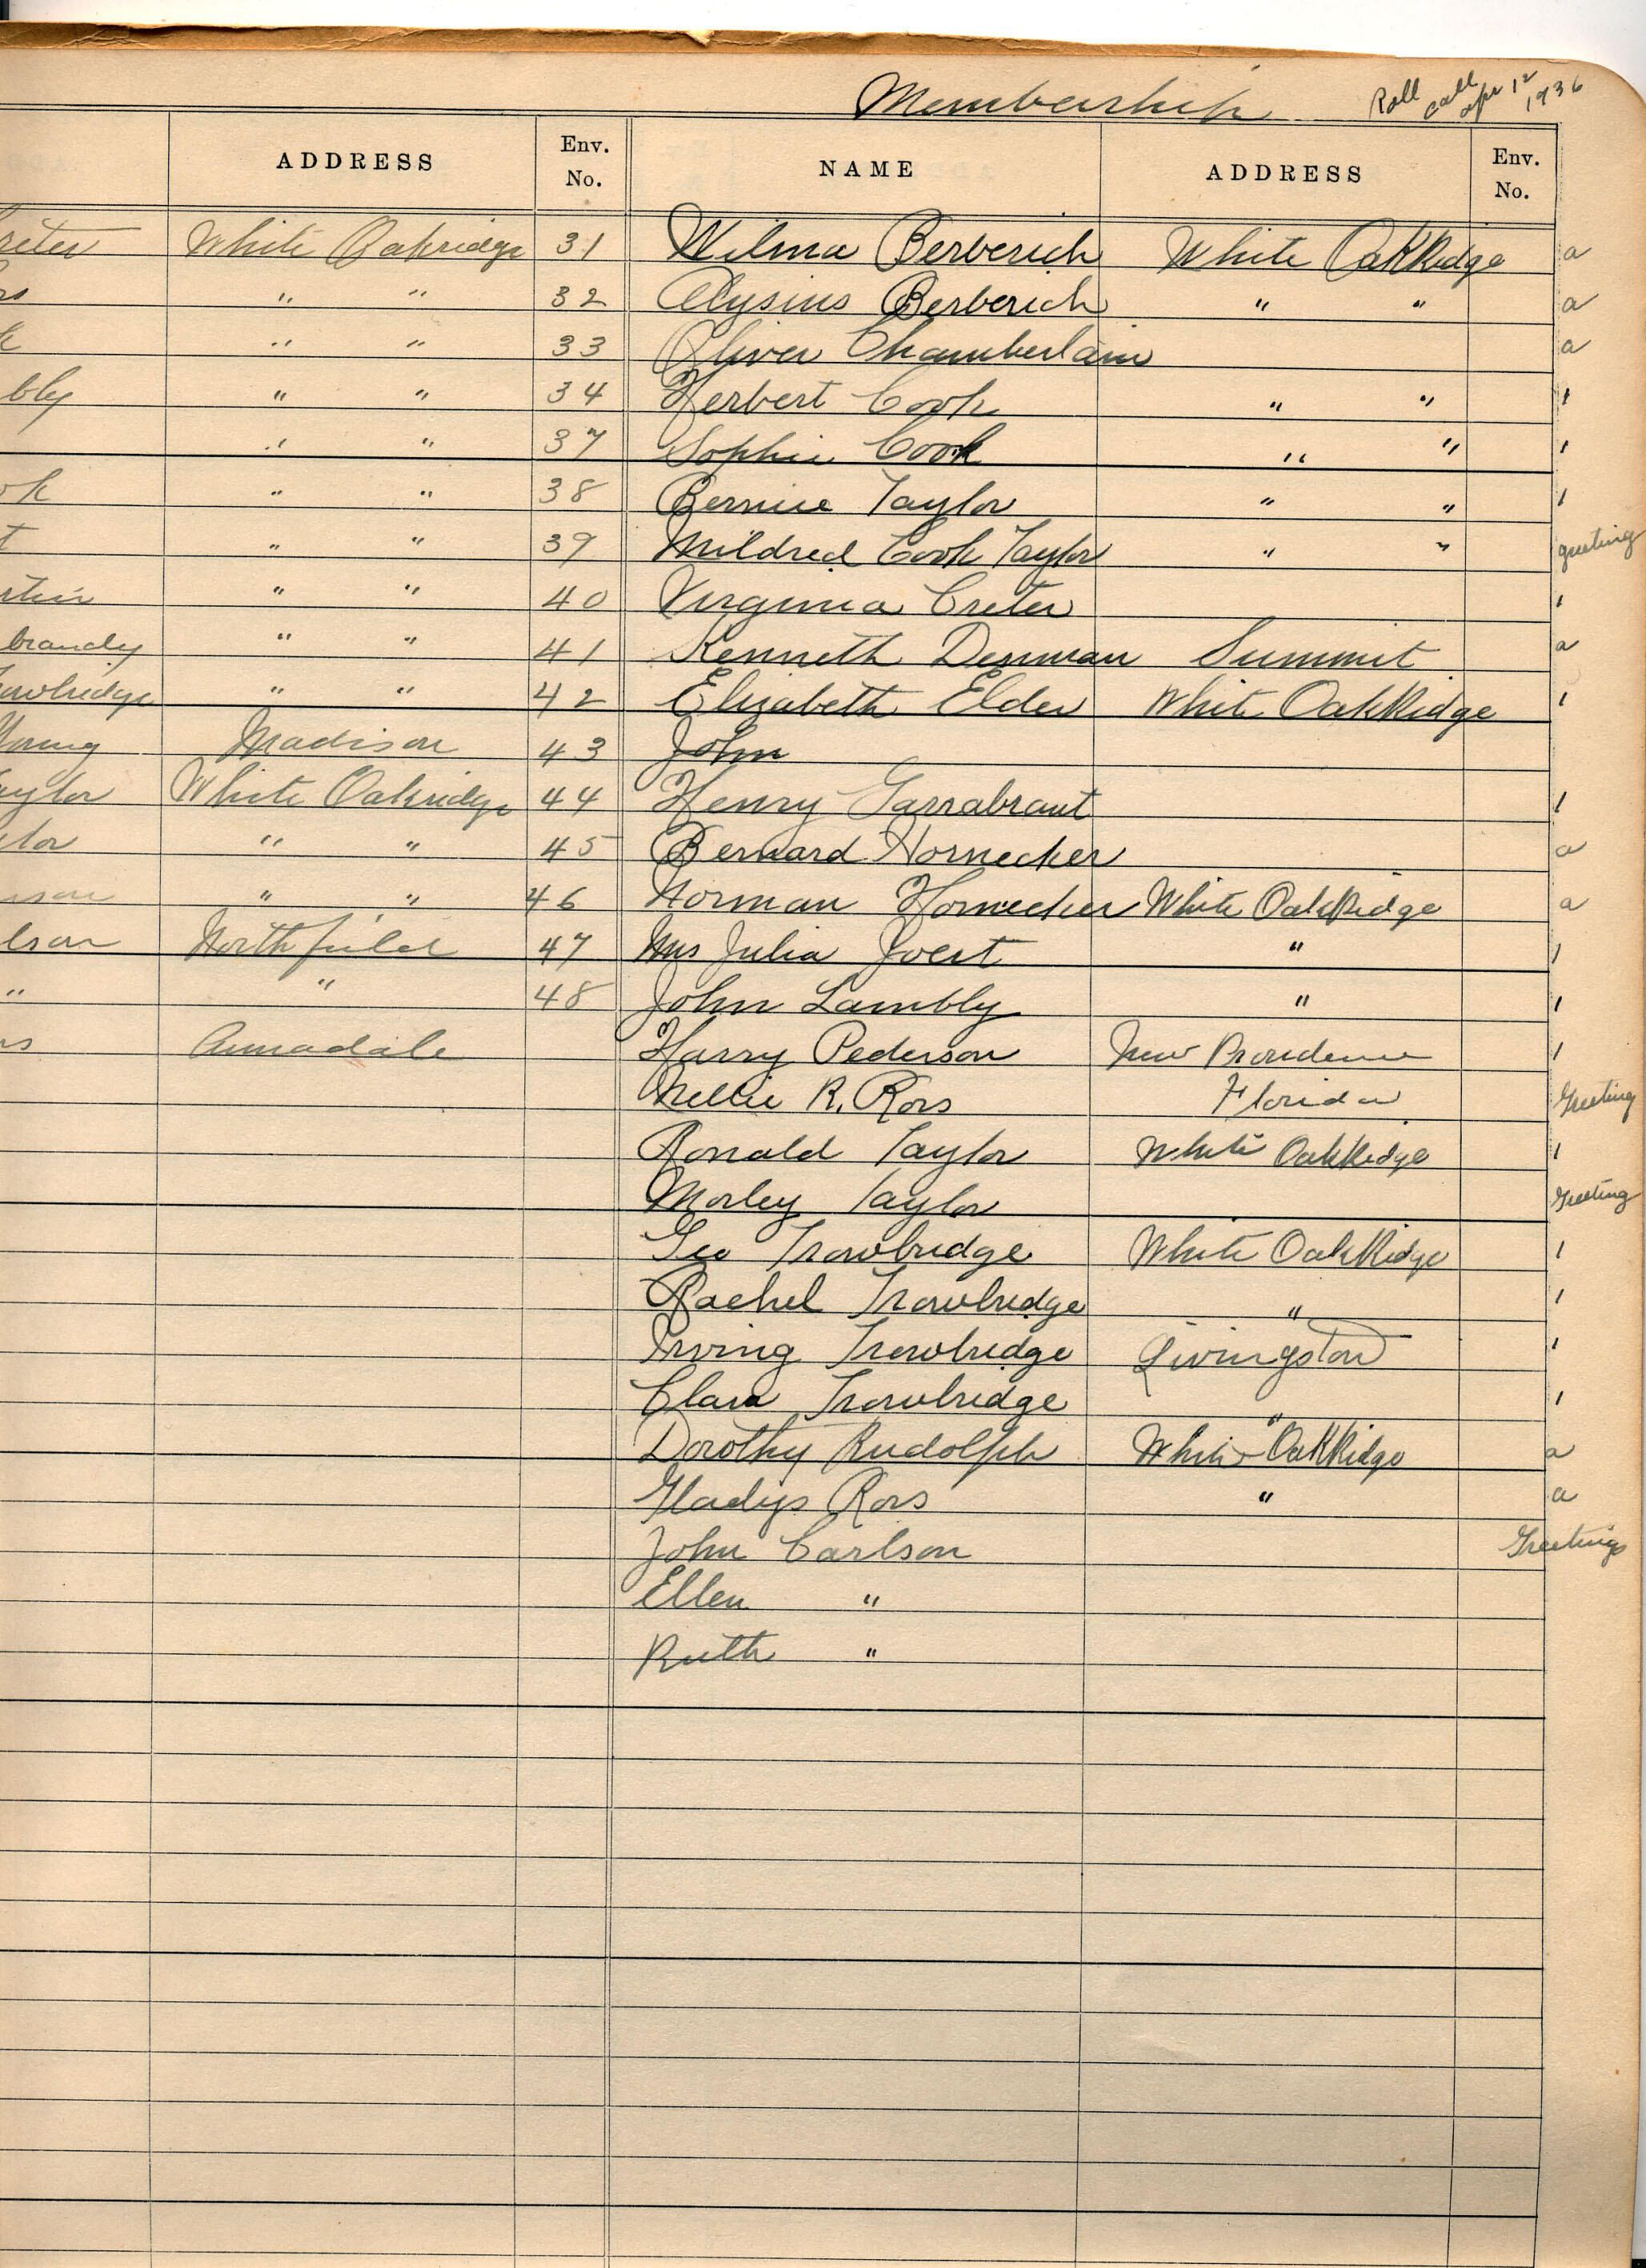 Membership Roll call apr 12 1936
ADDRESS Env. No. NAME ADDRESS Env. No.
White Oakridge 31 Wilma Berberich White OakRidge a
" " 32 Alysius Berberich " " a
" " 33 Oliver Chamberlain a
bly " " 34 Herbert Cook " " 1
" " 37 Sophie Cook " " 1
" " 38 Bernice Taylor " " 1
" " 39 Mildred Cook Taylor " " greeting
" " 40 Virginia Creter 1
brandy " " 41 Kenneth Denman Summit a
owbridge " " 42 Elizabeth Elder White OakRidge 1
Young Madison 43 John
aylor White Oakridge 44 Henry Garrabrant 1
lor " " 45 Bernard Hornecker a
" " 46 Norman Hornecker White OakRidge a
lson Northfield 47 Mrs Julia Joert " 1
" " 48 John Lambly " 1
Annadale Harry Pederson New Providence 1
Nellie R. Ross Florida Greeting
Ronald Taylor White OakRidge 1
Morley Taylor Greeting
Geo Trowbridge White OakRidge 1
Rachel Trowbridge " 1
Irving Trowbridge Livingston 1
Clara Trowbridge " 1
Dorothy Rudolph White OakRidge a
Gladys Ross " a
John Carlson Greetings
Ellen "
Ruth "